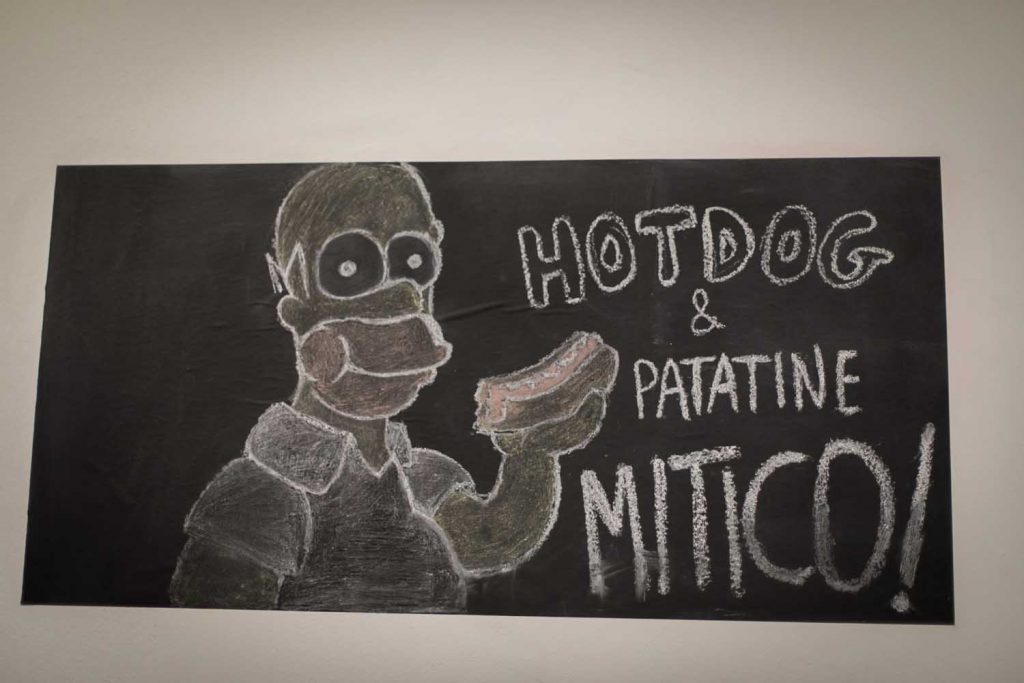 HOTDOG
&
PATATINE
MITICO!